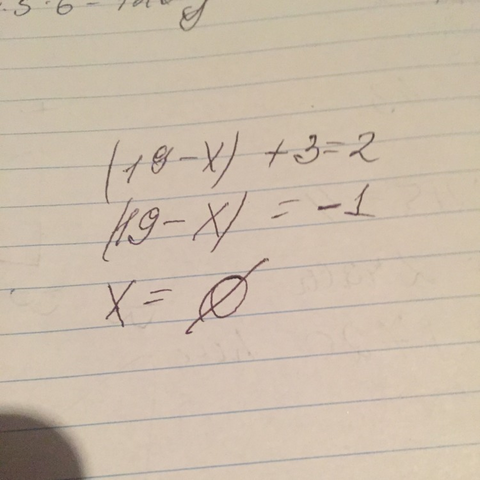 (19-x) +3=2
(19-x) = -1
x= Ø